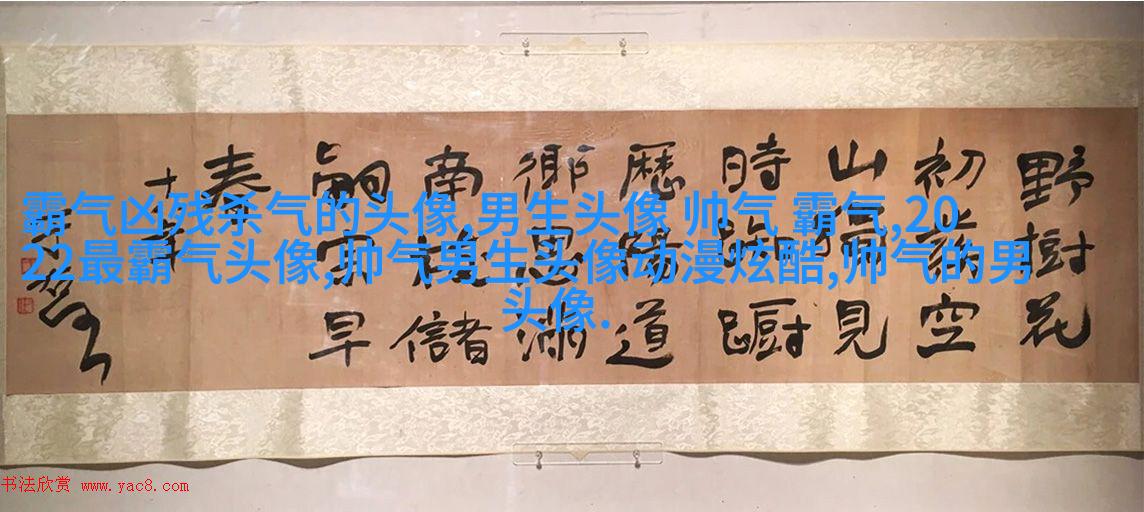 野樹花
初發空
山獨見
時踟躕
歷陽道
鄉思滿
南枝儲
嗣宗早
春
霸气凶残杀气的头像,男生头像 帅气 霸气,20
22最霸气头像,帅气男生头像动漫炫酷,帅气的男
头像.
书法欣赏 www.yac8.com